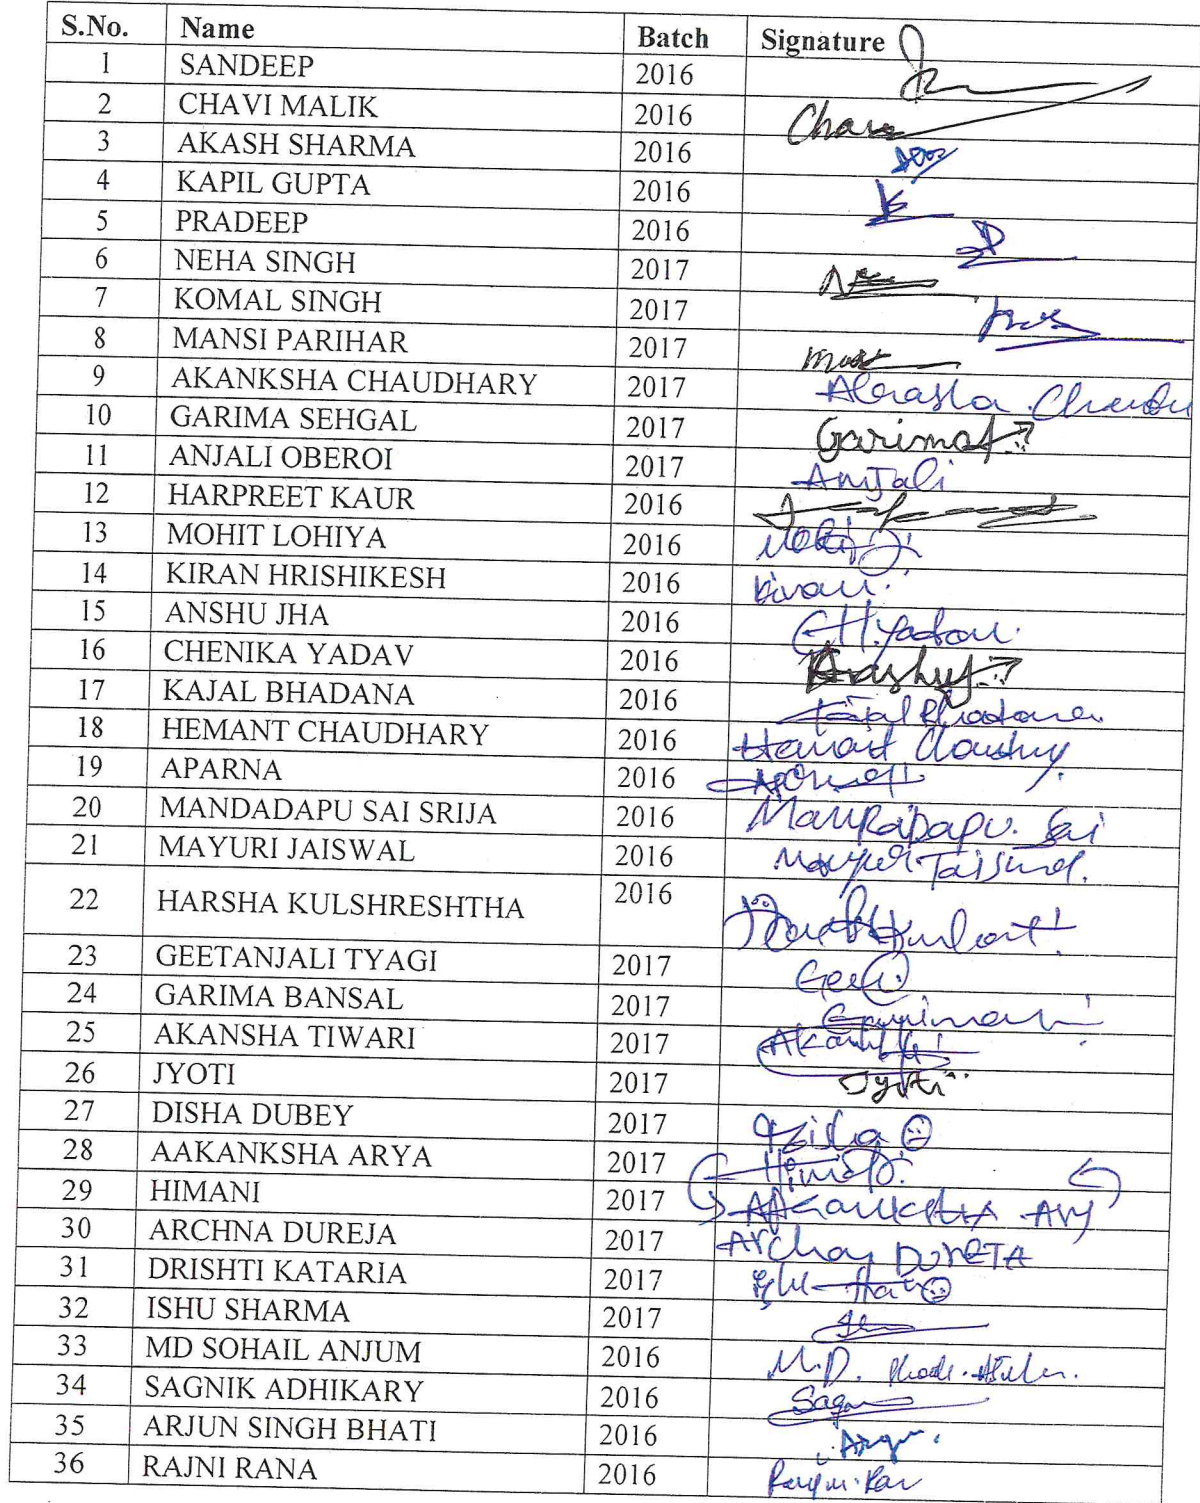 S.No. Name Batch Signature
1 SANDEEP 2016
2 CHAVI MALIK 2016
3 AKASH SHARMA 2016
4 KAPIL GUPTA 2016
5 PRADEEP 2016
6 NEHA SINGH 2017
7 KOMAL SINGH 2017
8 MANSI PARIHAR 2017
9 AKANKSHA CHAUDHARY 2017
10 GARIMA SEHGAL 2017 Garima
11 ANJALI OBEROI 2017 AnJali
12 HARPREET KAUR 2016
13 MOHIT LOHIYA 2016
14 KIRAN HRISHIKESH 2016 Kiran
15 ANSHU JHA 2016
16 CHENIKA YADAV 2016
17 KAJAL BHADANA 2016
18 HEMANT CHAUDHARY 2016
19 APARNA 2016
20 MANDADAPU SAI SRIJA 2016 Sai
21 MAYURI JAISWAL 2016
22 HARSHA KULSHRESHTHA 2016
23 GEETANJALI TYAGI 2017
24 GARIMA BANSAL 2017
25 AKANSHA TIWARI 2017
26 JYOTI 2017 Jyoti
27 DISHA DUBEY 2017
28 AAKANKSHA ARYA 2017
29 HIMANI 2017
30 ARCHNA DUREJA 2017
31 DRISHTI KATARIA 2017
32 ISHU SHARMA 2017
33 MD SOHAIL ANJUM 2016 M.D.
34 SAGNIK ADHIKARY 2016
35 ARJUN SINGH BHATI 2016
36 RAJNI RANA 2016